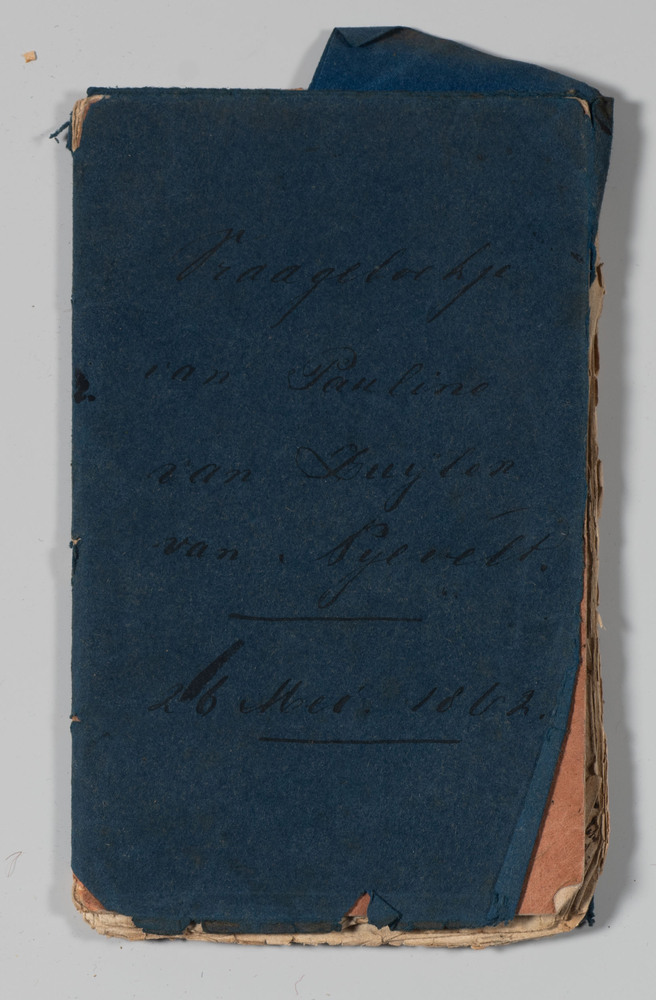 Vraageboekje
van Pauline
van Zuylen
van Nyevelt.
26 Mei. 1862.